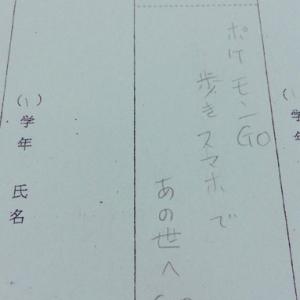 ポケモンGO
歩きスマホで
あの世へGo
(1)学年 氏名
(1)学年